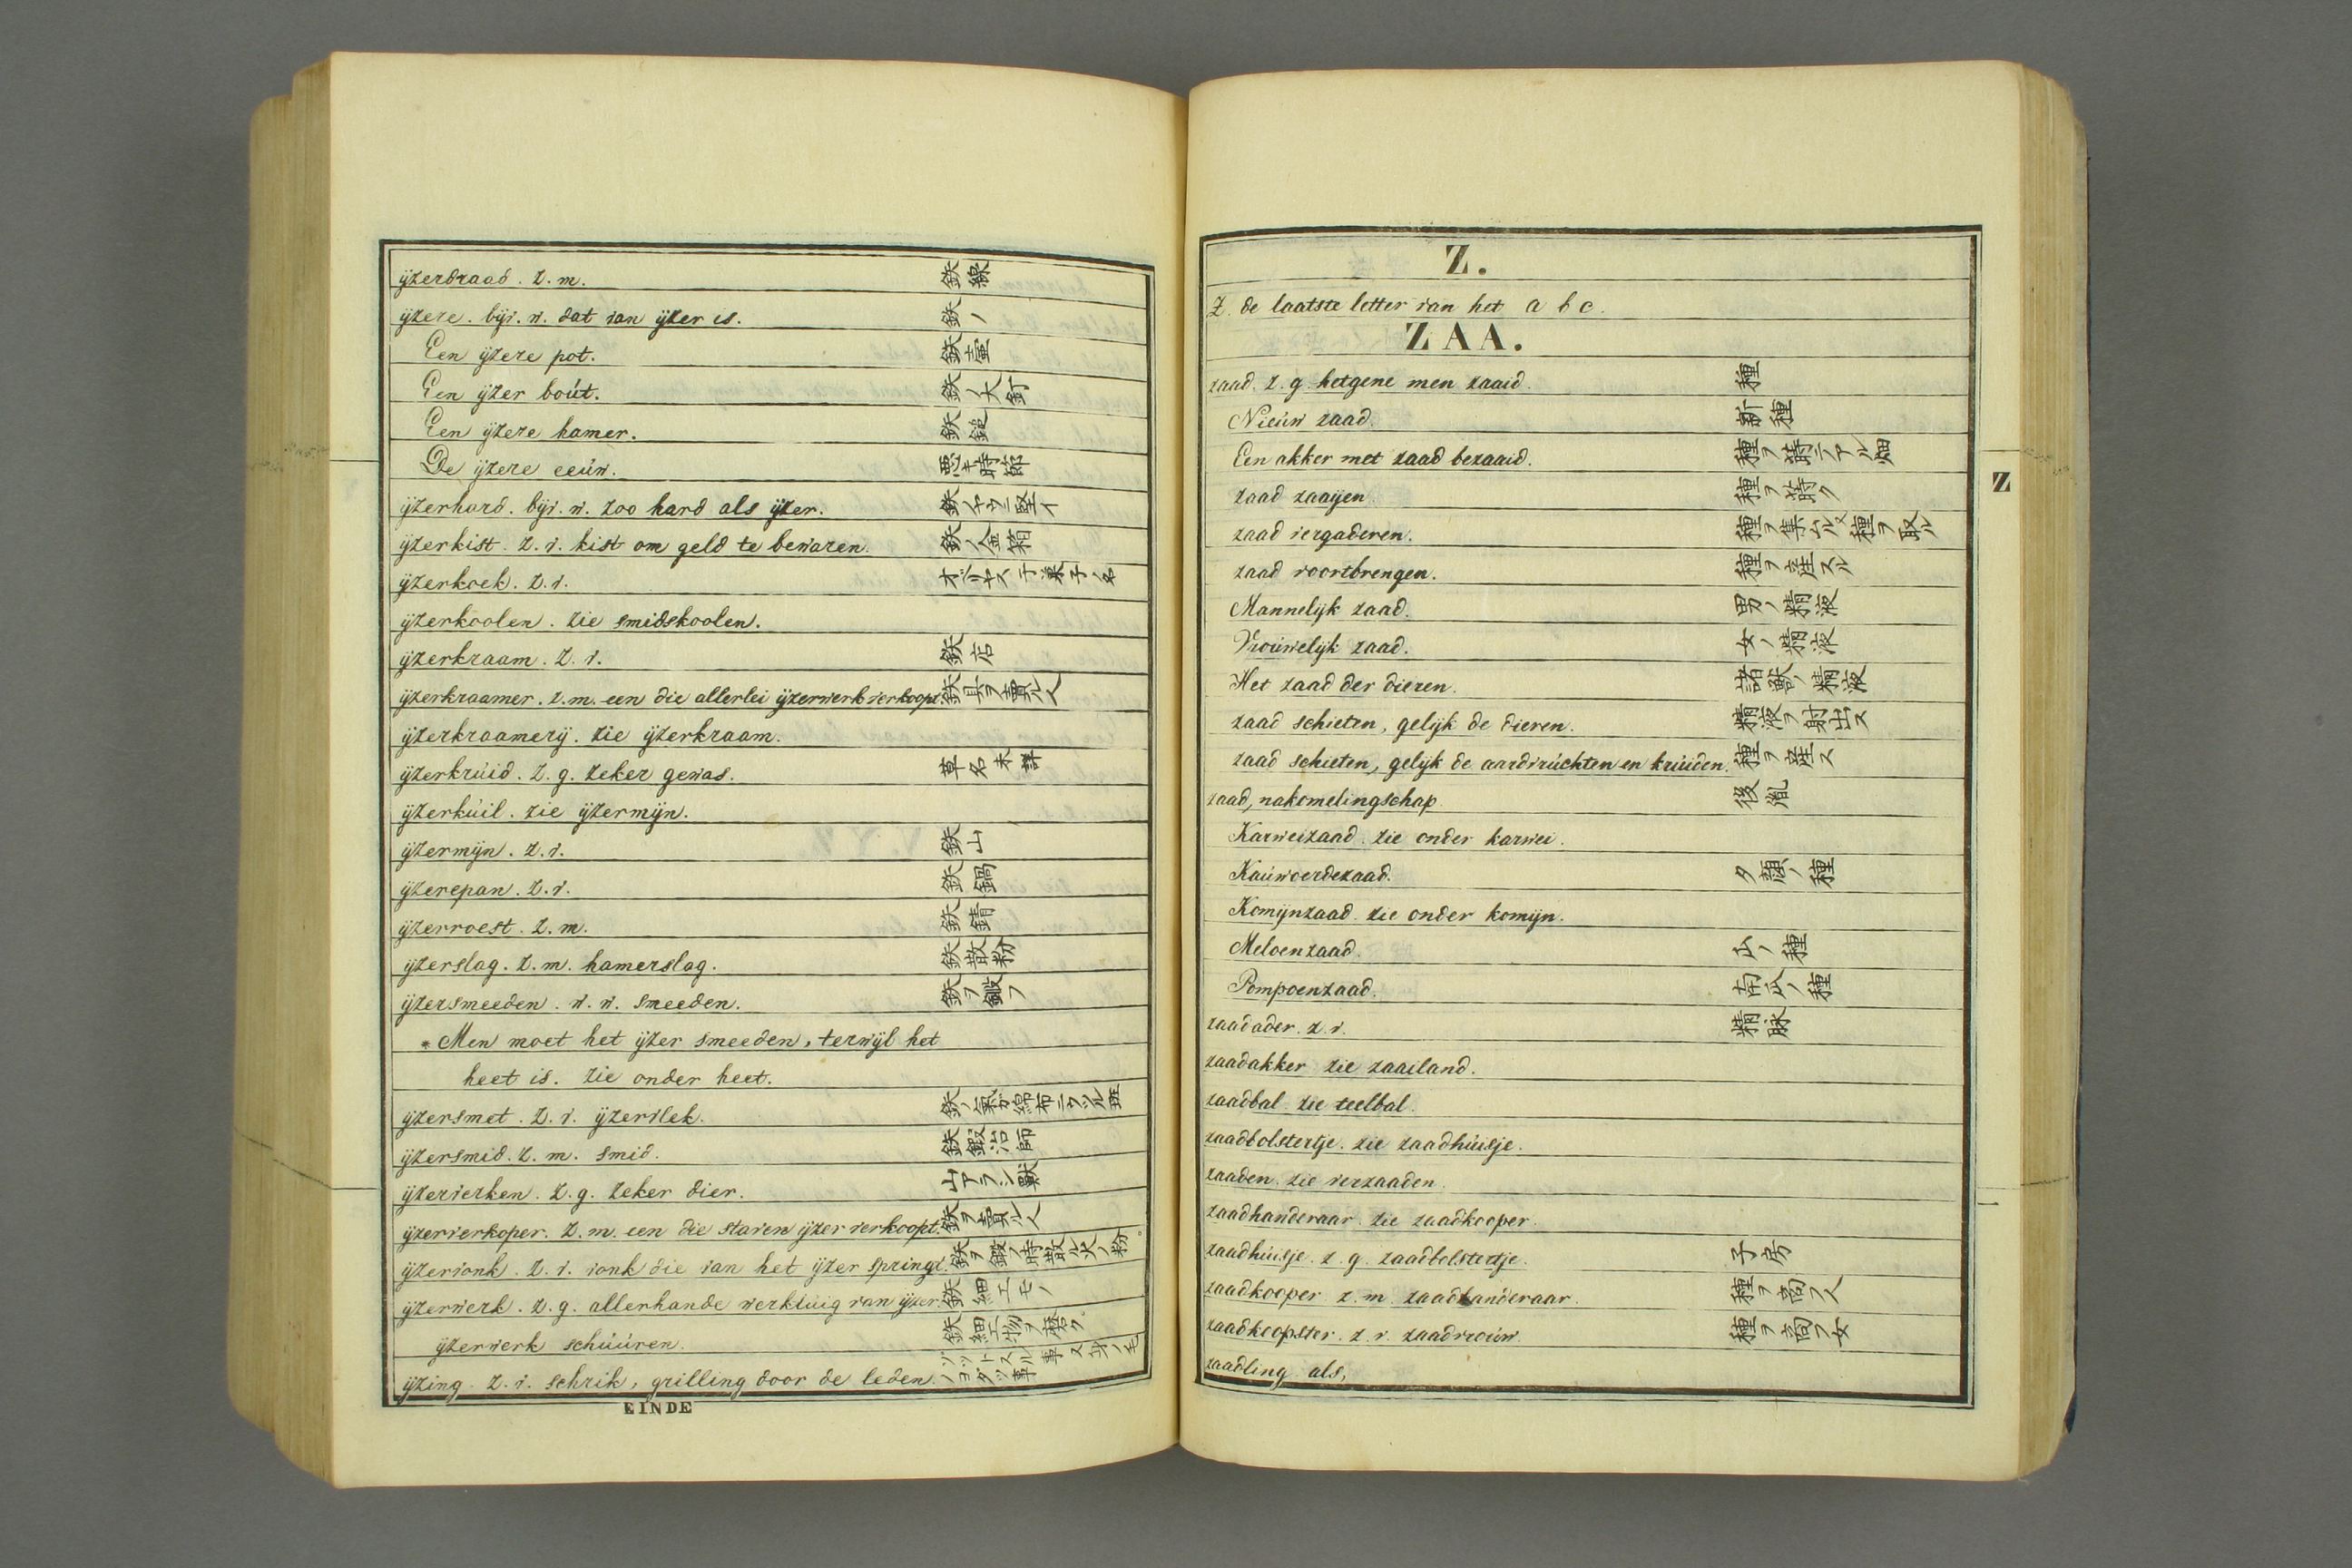 ijzerdraad. z. m. 鉄線
ijzere. bijv. w. dat van ijzer is. 鉄ノ
Een ijzere pot. 鉄壷
Een ijzer boút. 鉄ノ大釘
Een ijzere hamer. 鉄鎚
De ijzere eeúw. 悪キ時節
ijzerhard. bijv. w. zoo hard als ijzer. 鉄ノヤウニ堅イ
ijzerkist. z. v. kist om geld te bewaren. 鉄ノ金箱
ijzerkoek. z. v. 菓子ノ名
ijzerkoolen. zie smidskoolen.
ijzerkraam. z. v. 鉄店
ijzerkraamer. z. m. een die allerlei ijzerwerk verkoopt. 鉄具ヲ賣ル人
ijzerkraamerij. zie ijzerkraam.
ijzerkrúid. z. g. zeker gewas. 草名未詳
ijzerkúil. zie ijzermijn.
ijzermijn. z. v. 鉄山
ijzerepan. z. v. 鉄鍋
ijzerroest. z. m. 鉄錆
ijzerslag. z. m. hamerslag. 鉄散粉
ijzersmeeden. w. w. smeeden. 鉄ヲ鍛フ
* Men moet het ijzer smeeden, terwijl het
heet is. zie onder heet.
ijzersmet. z. v. ijzervlek. 鉄ノ氣ガ綿布ニウツル斑
ijzersmid. z. m. smid. 鉄鍛冶師
ijzerverken. z. g. zeker dier. 山アラシ獣
ijzerverkoper. z. m. een die staven ijzer verkoopt. 鉄ヲ賣ル人
ijzervonk. z. v. vonk die van het ijzer springt. 鉄ヲ鍛フ時散ル火ノ粉
ijzerwerk. z. g. allerhande werktúig van ijzer. 鉄細工モノ
ijzerwerk schúúren. 鉄細工物ヲ磨ク
ijzing. z. v. schrik, grilling door de leden.
EINDE
Z.
Z. de laatste letter van het a b c.
ZAA.
zaad. z. g. hetgene men zaaid. 種
Nieúw zaad. 新種
Een akker met zaad bezaaid. 種ヲ蒔テアル畑
zaad zaaijen. 種ヲ蒔ク
zaad vergaderen. 種ヲ集ムル又種ヲ取ル
zaad voortbrengen. 種ヲ産スル
Mannelijk zaad. 男ノ精液
Vroúwelijk zaad. 女ノ精液
Het zaad der dieren. 諸獣ノ精液
zaad schieten, gelijk de dieren. 精液ヲ射出ス
zaad schieten, gelijk de aardvrúchten en krúiden. 種ヲ産ス
zaad, nakomelingschap 後胤
Karweizaad. zie onder karwei.
Kaúwoerdezaad. 夕顔ノ種
Komijnzaad. zie onder komijn.
Meloenzaad. ノ種
Pompoenzaad. 南瓜ノ種
zaadader. z. v. 精脉
zaadakker zie zaailand.
zaadbal. zie teelbal.
zaadbolstertje. zie zaadhúisje.
zaaden. zie verzaaden.
zaadhanderaar. zie zaadkooper.
zaadhúisje. z. g. zaadbolstertje. 子房
zaadkooper. z. m. zaadhanderaar. 種ヲ商フ人
zaadkoopster. z. v. zaadvroúw. 種ヲ商フ女
zaadling als,
Z